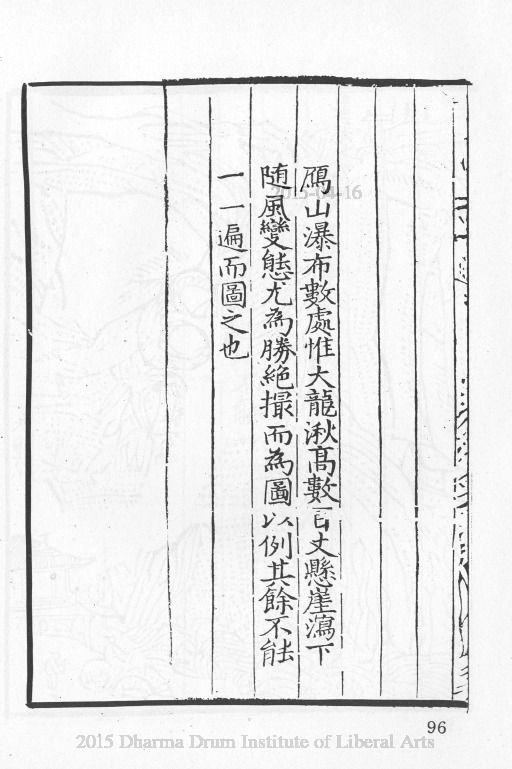 鴈山瀑布數處惟大龍湫髙數百丈懸崖瀉下
随風變態尤為勝絶撮而為圖以例其餘不能
一一遍而圖之也
2015-04-16
96
2015 Dharma Drum Institute of Liberal Arts